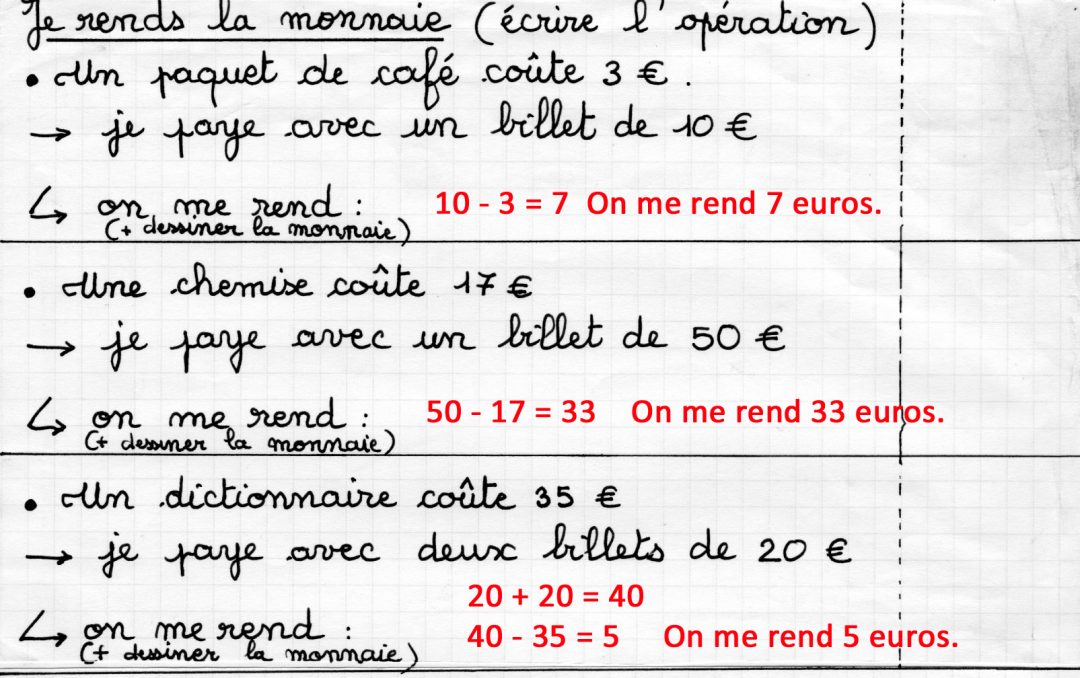 Je rends la monnaie (écrire l'opération)
• Un paquet de café coûte 3 €.
→ je paye avec un billet de 10 €
↳ on me rend : 10 - 3 = 7 On me rend 7 euros.
(+ dessiner la monnaie)
• Une chemise coûte 17 €
→ je paye avec un billet de 50 €
↳ on me rend : 50 - 17 = 33 On me rend 33 euros.
(+ dessiner la monnaie)
• Un dictionnaire coûte 35 €
→ je paye avec deux billets de 20 €
20 + 20 = 40
↳ on me rend : 40 - 35 = 5 On me rend 5 euros.
(+ dessiner la monnaie)